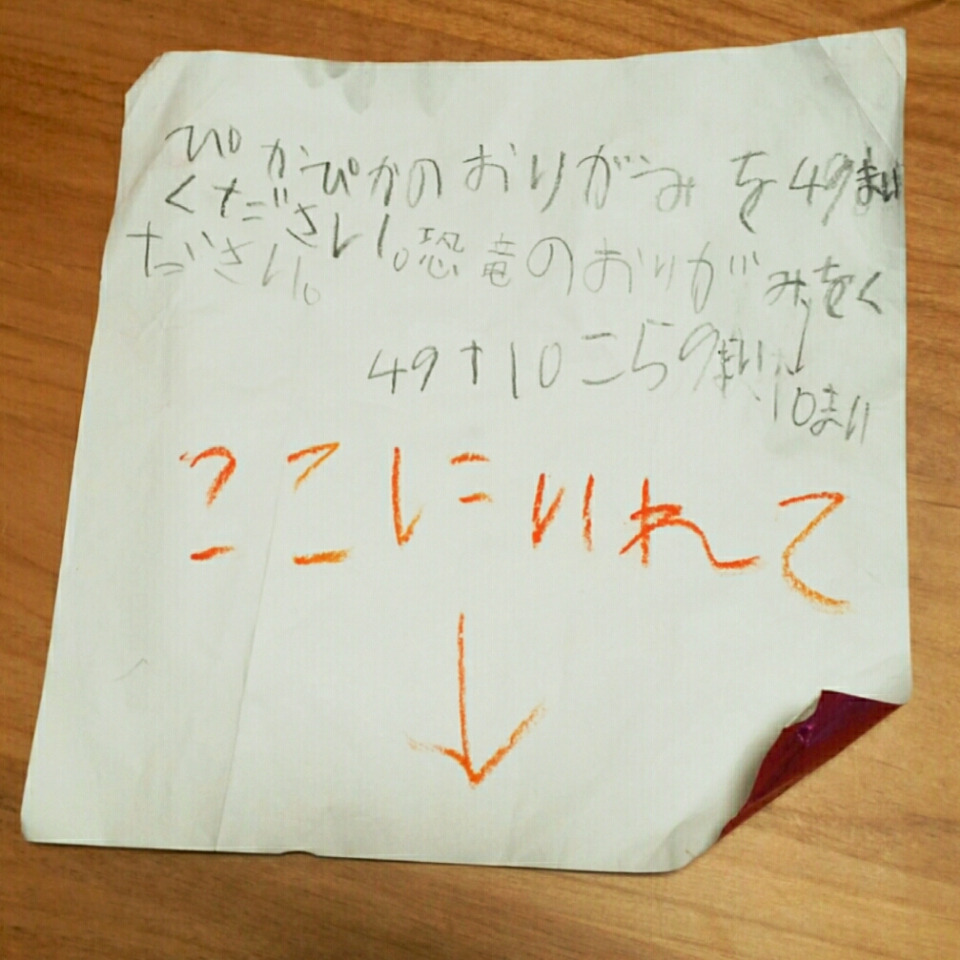 ぴかぴかのおりがみを49まい
ください。恐竜のおりがみをく
ださい。 10まい
49+10こ
ここにいれて